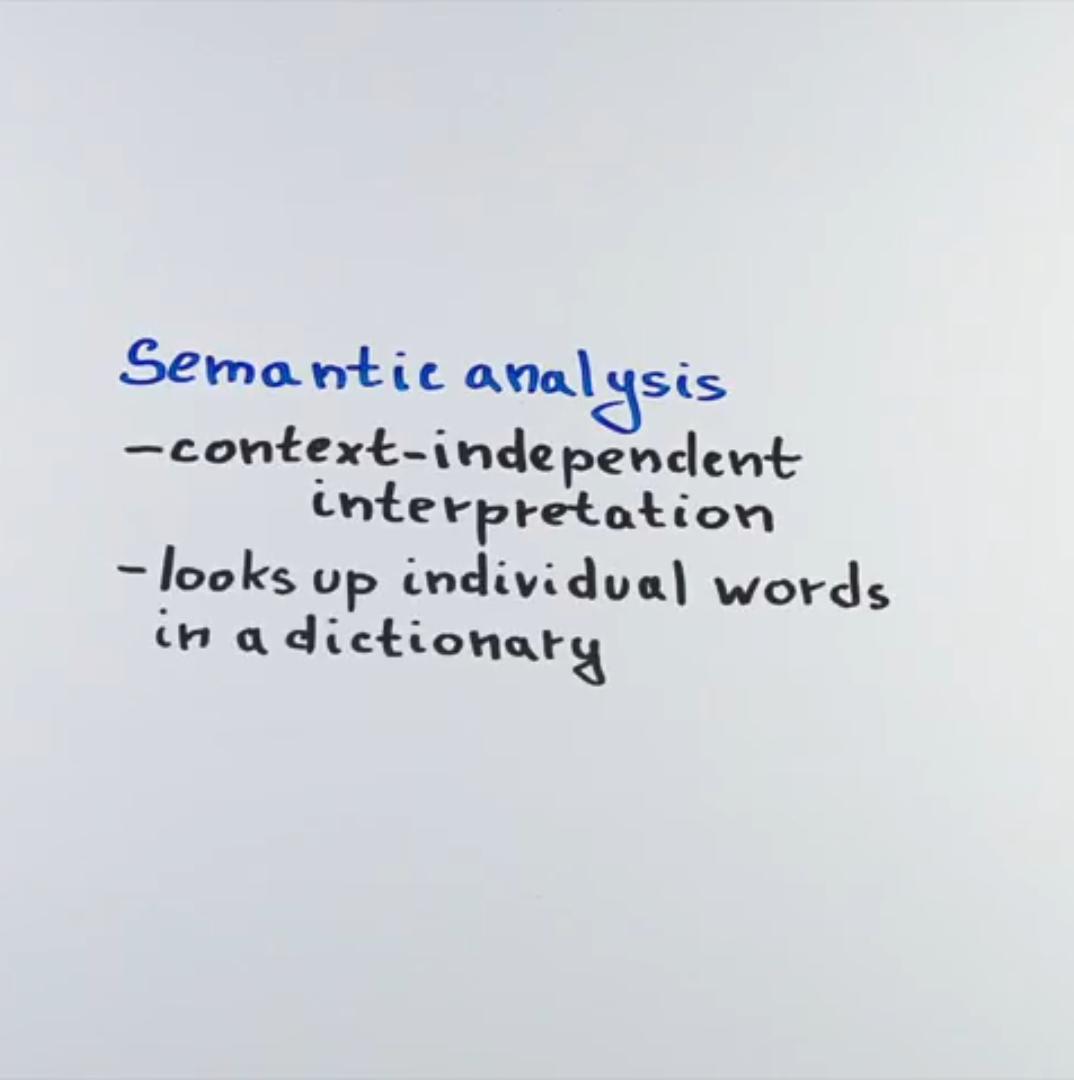 Semantic analysis
-context-independent
interpretation
-looks up individual words
in a dictionary